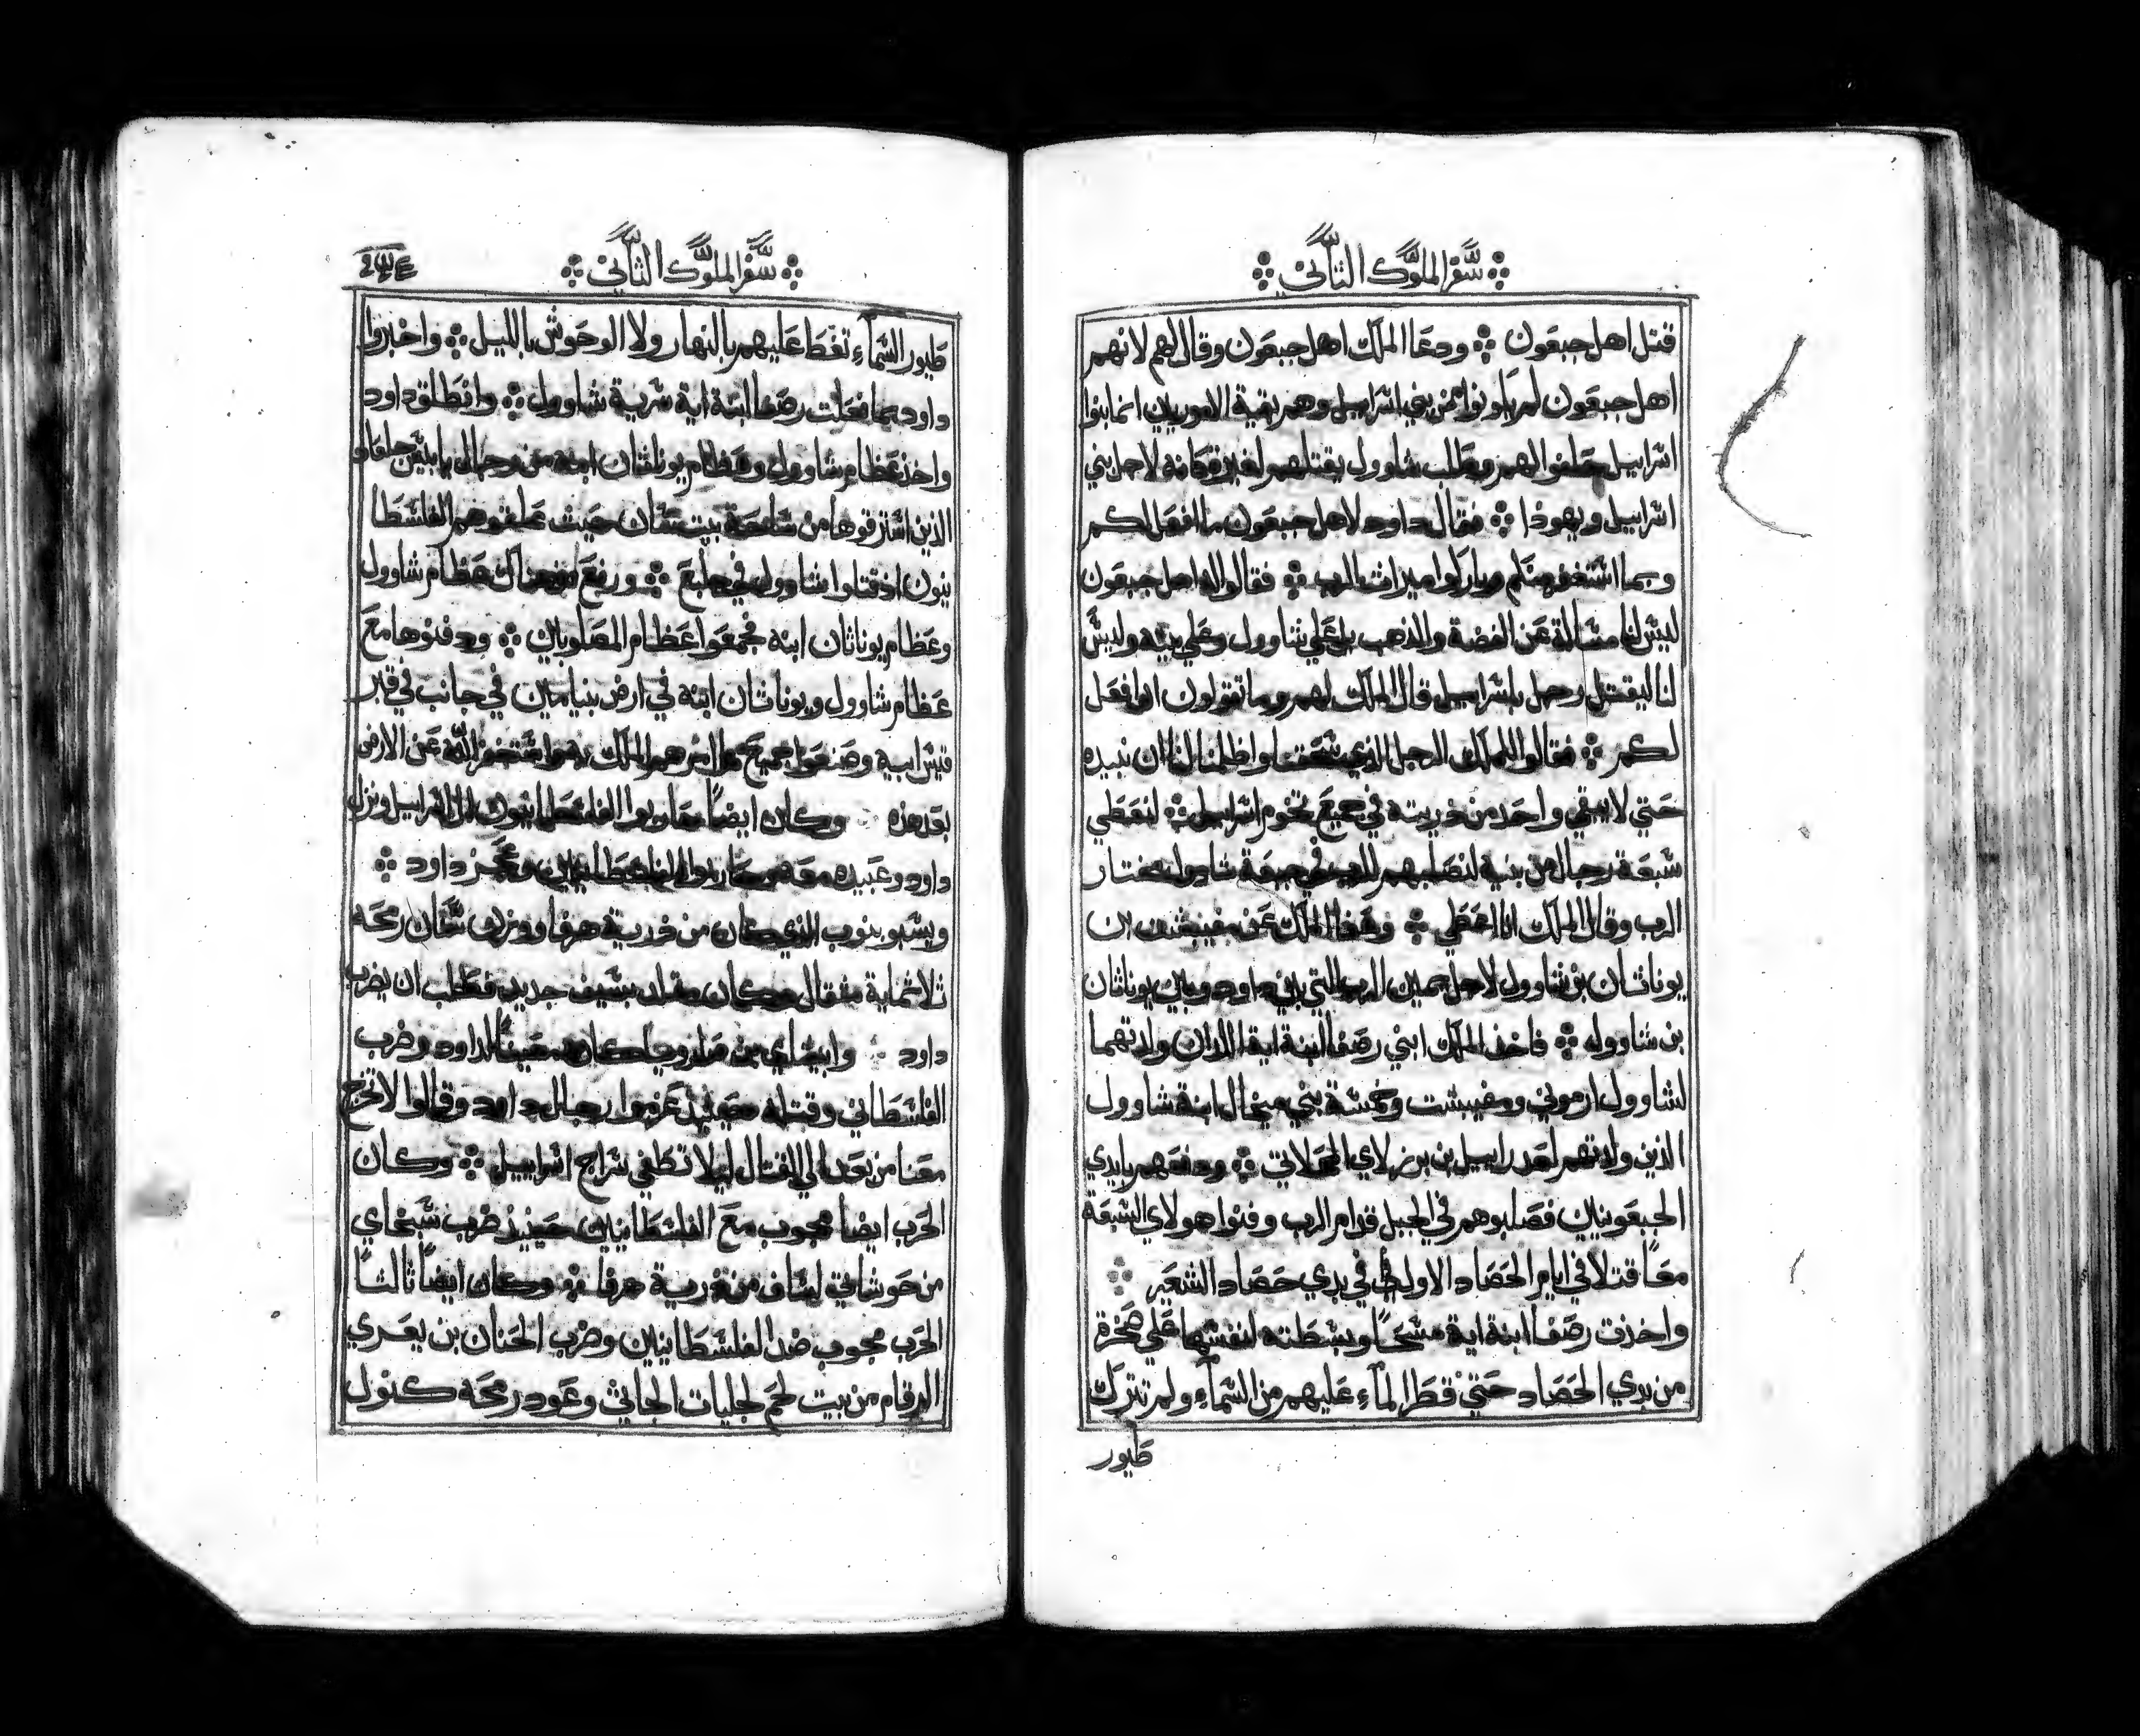 سفر الملوك الثاني
قتل اهل جبعون ودعا الملك اهل جبعون وقال لهم لانهم
اهل جبعون لم يكونوا من بني اسراييل وهم بقية الاموريين انما بنوا
اسراييل حلفوا لهم وطلب شاوول يقتلهم لغيرة كانه لاجل بني
اسراييل ويهوذا فقال داود لاهل جبعون ما افعل لكم
وبما استغفر منكم وباركوا ميراث الرب فقالوا له اهل جبعون
ليس لنا مسالة عن الفضة والذهب بل علي شاوول وعلي بيته وليس
لنا ليقتل رجل باسراييل قال الملك لهم وما تقولون انا افعل
لكم فقالوا للملك الرجل الذي سحقنا واظلمنا لنا ان نبيده
حتي لا يبقي واحد من ذريته في جميع تخوم اسراييل لنعطي
سبعة رجال من بنيه لنصلبهم للرب في جبعة شاوول مختار
الرب وقال الملك انا اعطي وعفا الملك عن مفيبشت ابن
يوناثان بن شاوول لاجل يمين الرب التي بين داود وبين يوناثان
بن شاوول فاخذ الملك ابني رصفا ابنة اية اللذان ولدتهما
لشاوول ارموني ومفيبشت وخمسة بني ميخال ابنة شاوول
الذين ولدتهم لعدراييل بن برزلاي المحلاتي ودفعهم بايدي
الجبعونيين فصلبوهم في الجبل قدام الرب وفنوا هولاي السبعة
معًا قتلا في ايام الحصاد الاولي في بدي حصاد الشعير
واخذت رصفا ابنة اية مسحًا وبسطته لنفسها علي صخرة
من بدي الحصاد حتي قطر المآء عليهم من السمآء ولم تترك
طيور
سفر الملوك الثاني
طيور السمآء تغطا عليهم بالنهار ولا الوحوش بالليل واخبروا
داود بما فعلت رصفا ابنة اية سرية شاوول وانطلق داود
واخذ عظام شاوول وعظام يوناثان ابنه من رجال يابليس جلعاد
الذين استرقوها من ساحة بيت سان حيث علقوهم الفلسطا
نيون اذ قتلوا شاوول في جلبع ورفع من هناك عظام شاوول
وعظام يوناثان ابنه فجمعوا عظام المصلوبين ودفنوها مع
عظام شاوول ويوناثان ابنه في ارض بنيامين في جانب في قبر
قيس ابيه وصنعوا جميع ما امرهم الملك واستغفر الله عن الارض
بعد هذه وكان ايضًا محاربوا الفلسطانيون الي اسراييل ونزل
داود وعبيده معه وحاربوا الفلسطانيين وعجز داود
ويسبو بنوب الذي كان من ذرية هرفا ووزن سنان رمحه
ثلاثماية مثقال وكان مقلد بسيف جديد فطلب ان يضرب
داود وابيشاي بن صاروجا كان معينًا لداود وضرب
الفلسطاني وقتله حينيذ عزموا رجال داود وقالوا لا تخرج
معنا من بعد الي القتال ليلا تطفي سراج اسراييل وكان
الحرب ايضا بجوب مع الفلسطانيين حينيذ ضرب سبخاي
من حوشاتي لساف من ذرية هرفا وكان ايضًا ثالثًا
الحرب بجوب ضد الفلسطانيين وضرب الحنان بن يعري
الرقام من بيت لحم لجليات الجاثي وعود رمحه كنول